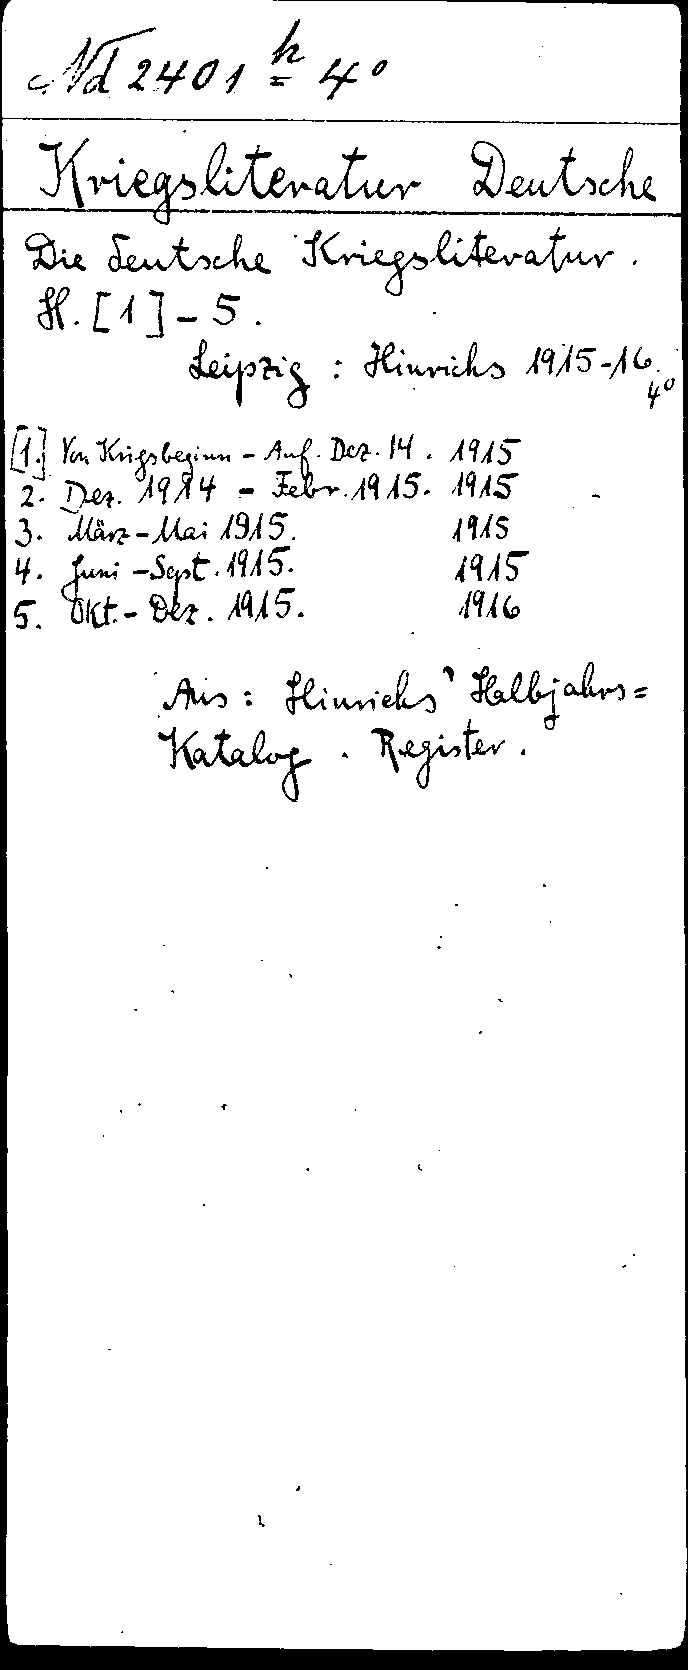 Nd 2401 h 4°
Kriegsliteratur Deutsche
Die deutsche Kriegsliteratur.
H. [1] - 5.
Leipzig : Hinrichs 1915-16.
4°
[1.] Von Kriegsbeginn - Anf. Dez. 14. 1915
2. Dez. 1914 - Febr. 1915. 1915
3. März - Mai 1915. 1915
4. Juni - Sept. 1915. 1915
5. Okt. - Dez. 1915. 1916
Aus : Hinrichs' Halbjahrs=
Katalog. Register.